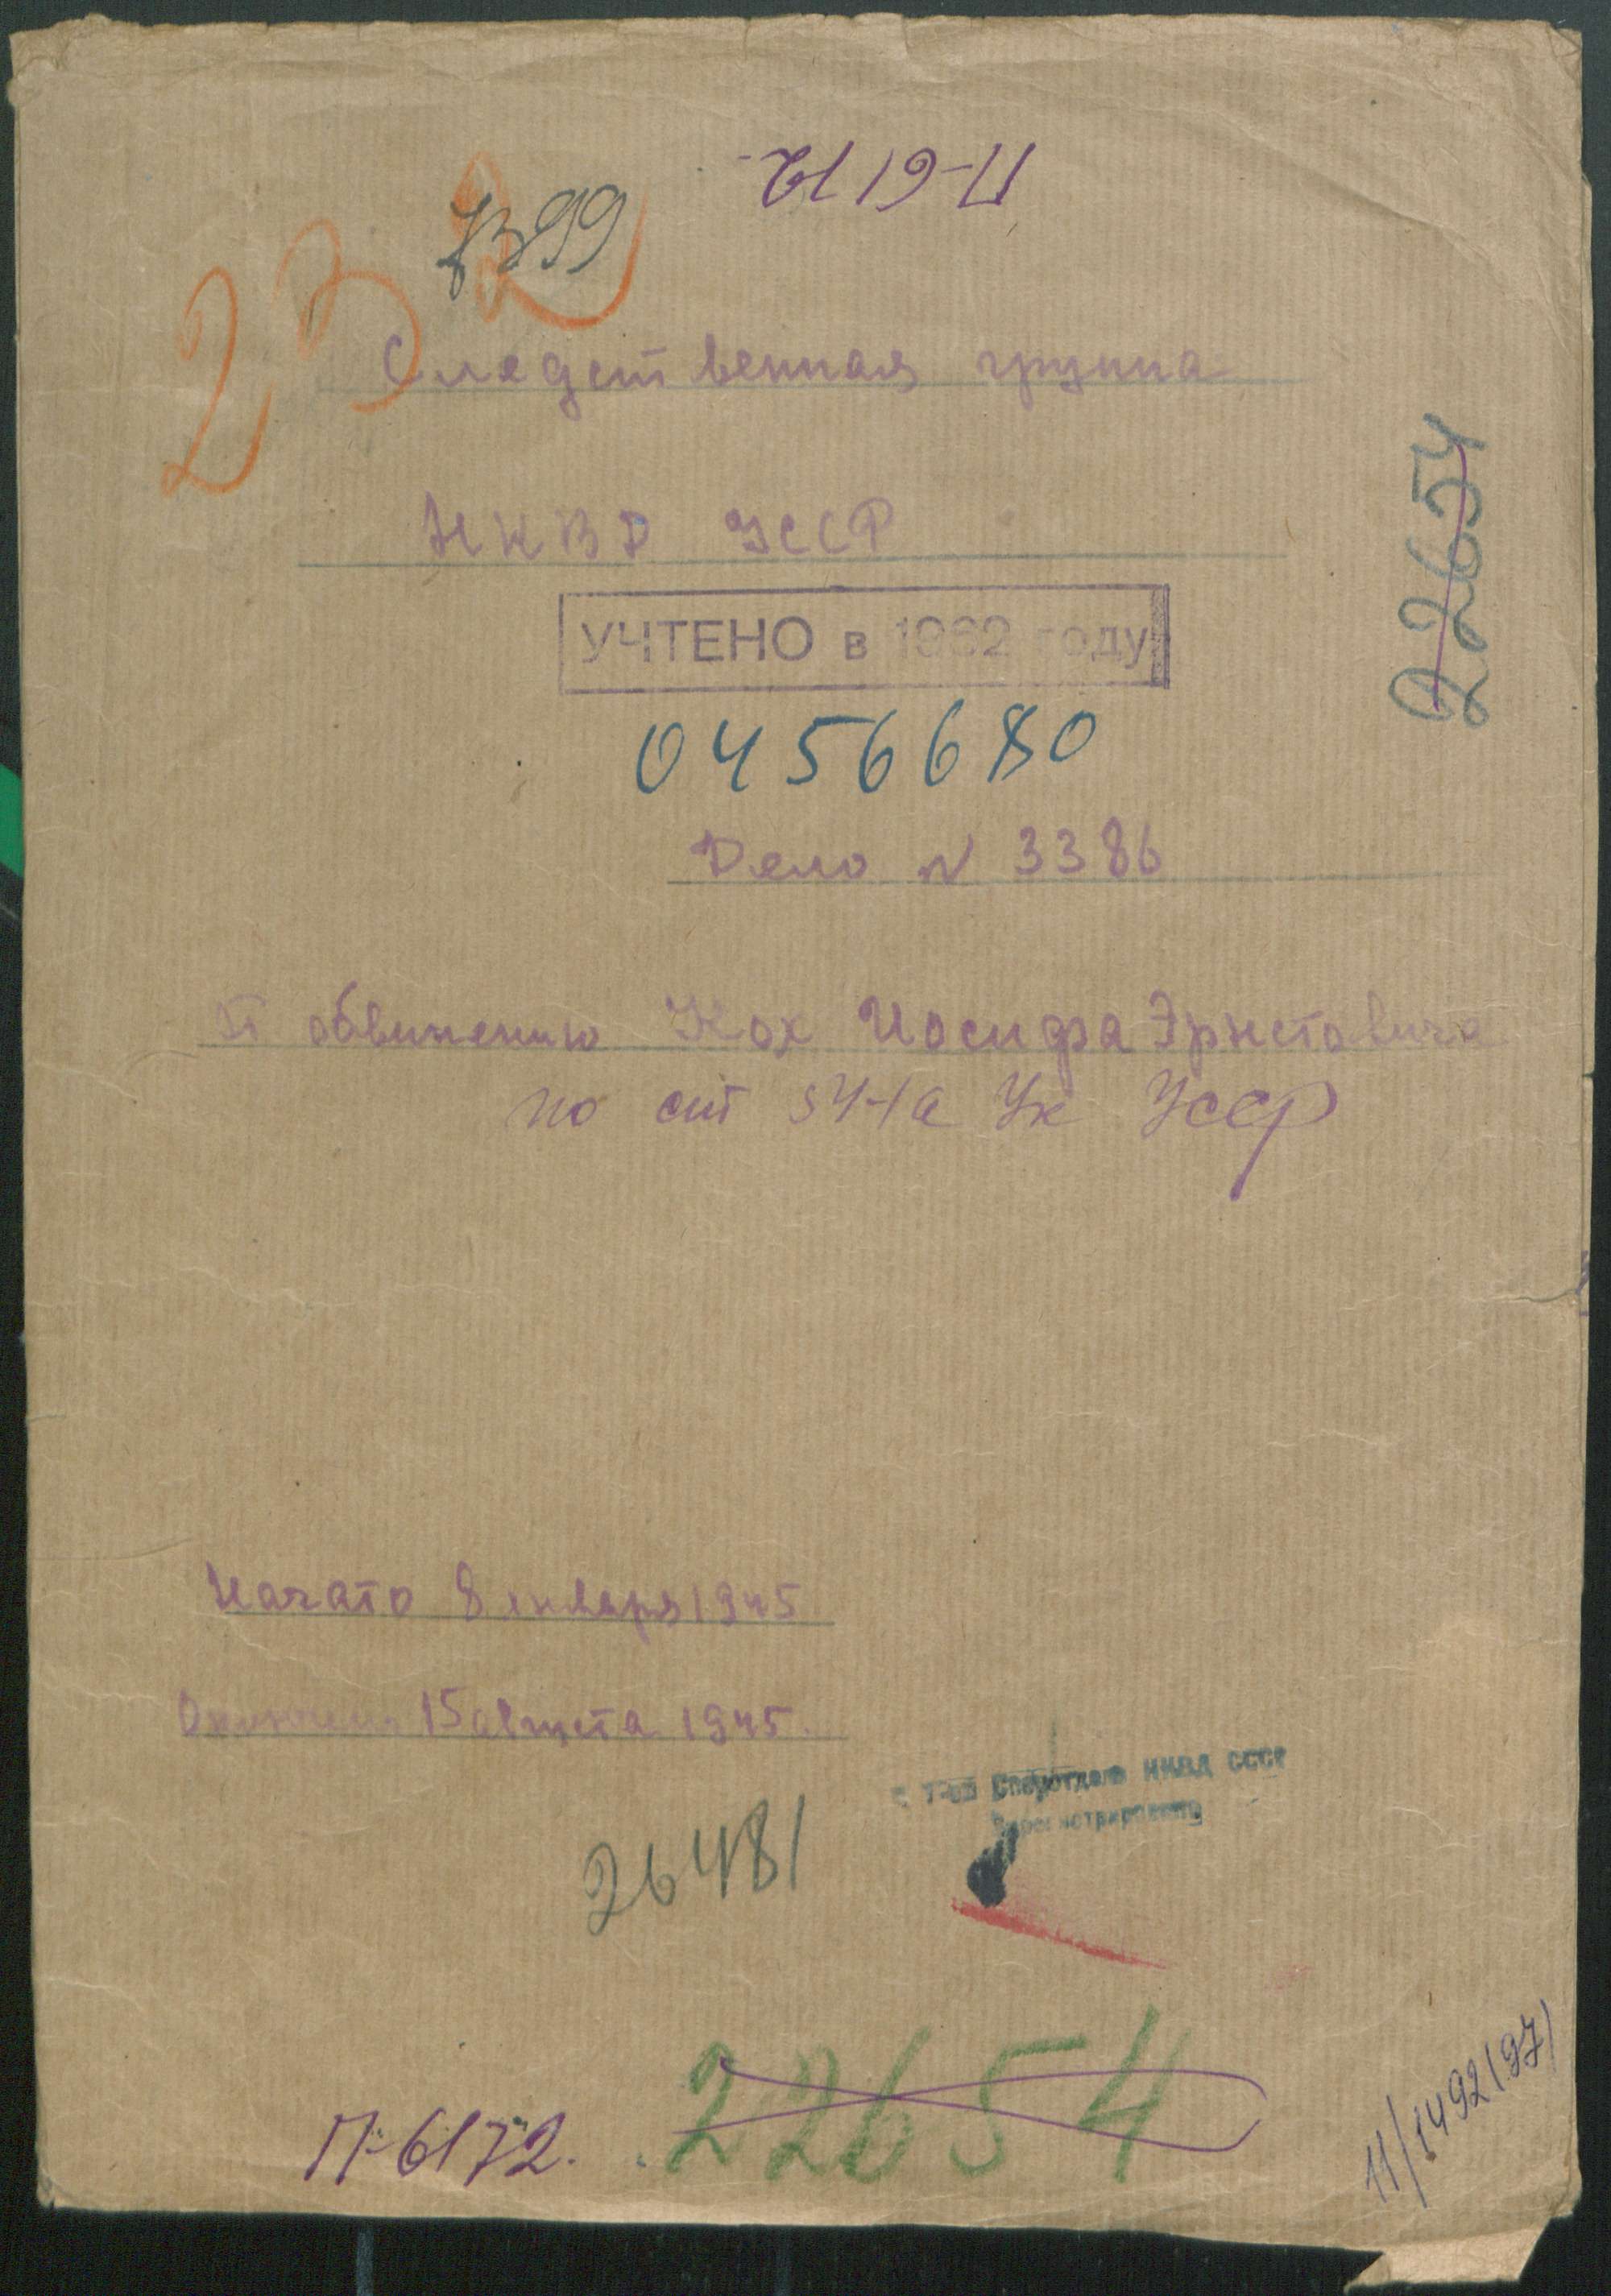 П-6172.
232
Следственная группа
НКВД УССР
22654
УЧТЕНО в 1962 году
0456680
Дело N 3386
П обвинению Кох Иосифа Эрнстовича
по ст 54-1а Ук Усср
Начато 8 января 1945
Окончено 15 августа 1945.
в 1-ом Спецотделе НКВД СССР
Зарегистрировано
26481
22654
П-6172.